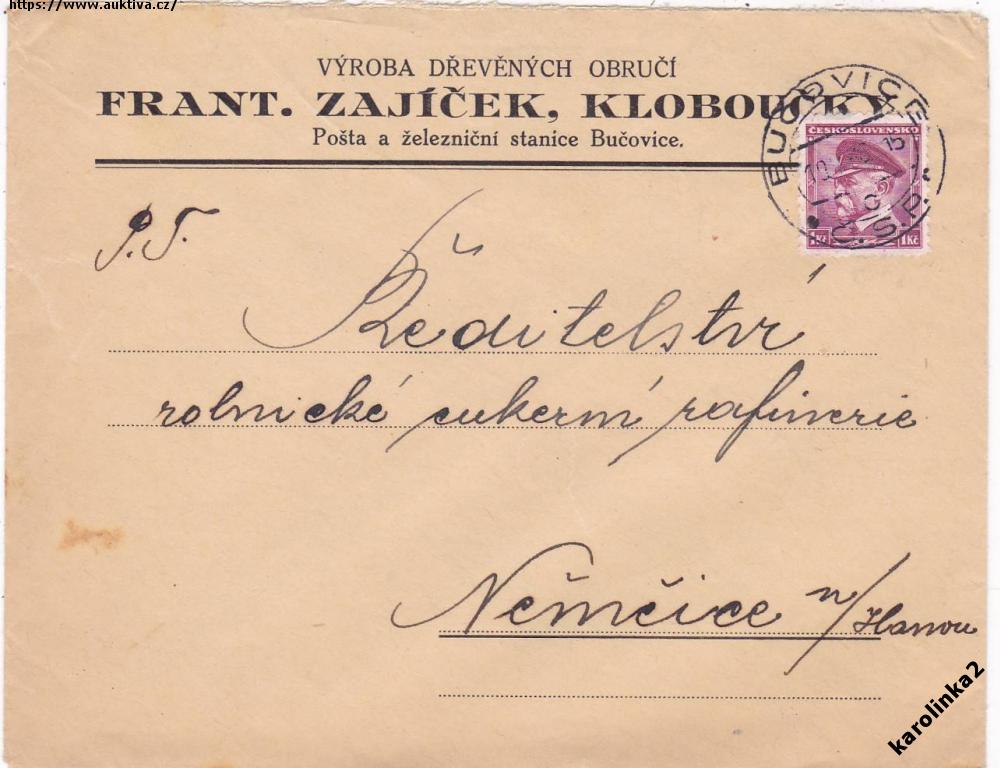 https://www.auktiva.cz/
VÝROBA DŘEVĚNÝCH OBRUČÍ
FRANT. ZAJÍČEK, KLOBOUČKY
Pošta a železniční stanice Bučovice.
BUČOVICE
Č.S.P.
ČESKOSLOVENSKO
1Kč 1Kč
P.T.
Ředitelství
rolnické cukerní rafinerie
Němčice n/Hanou
karolinka2